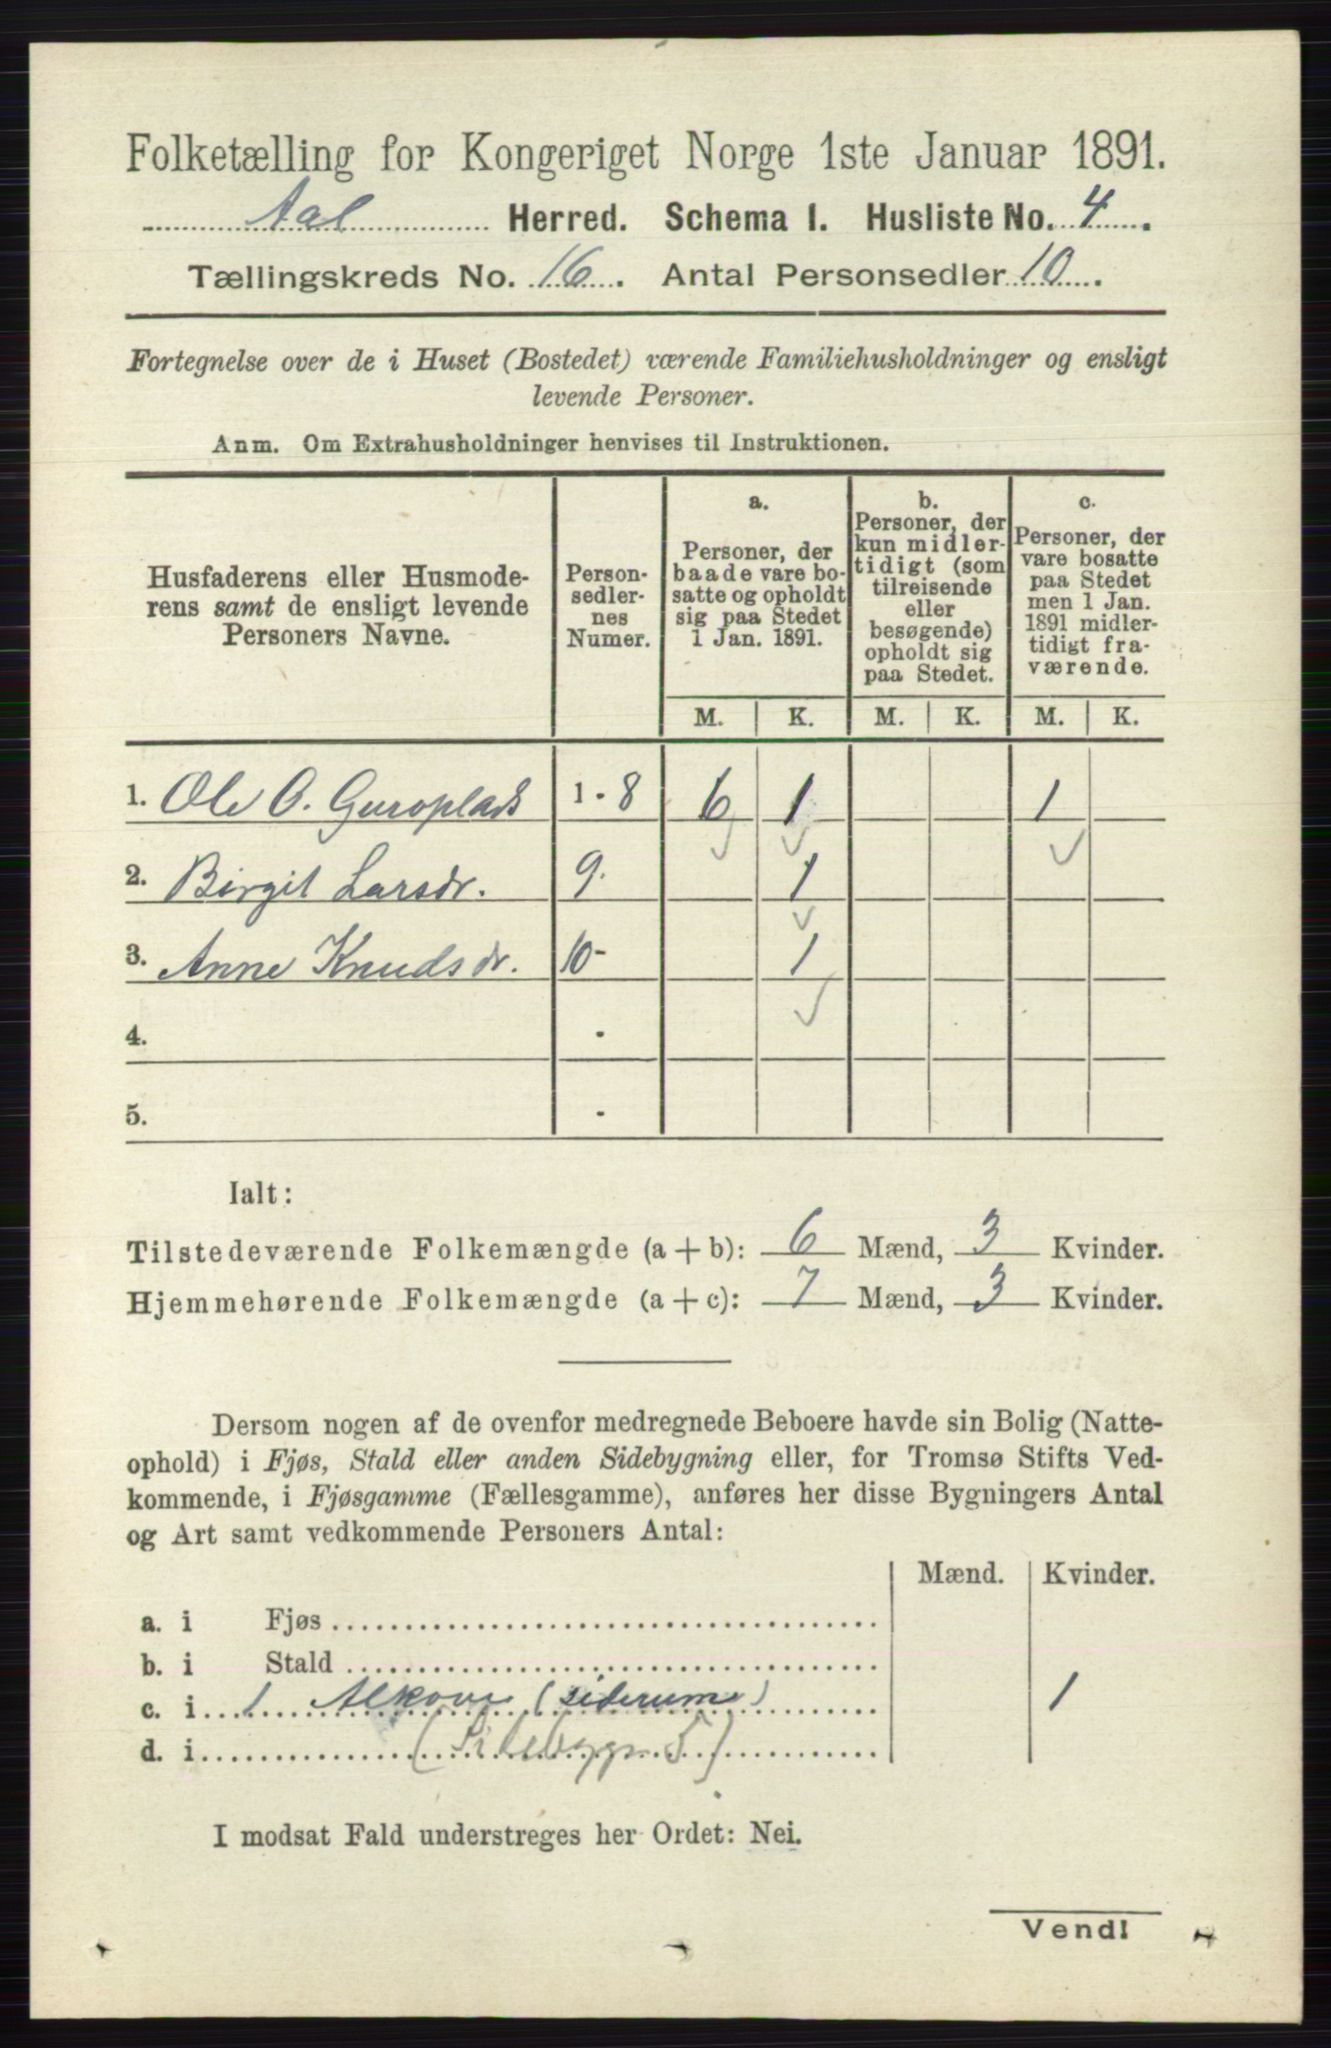 Folketælling for Kongeriget Norge 1ste Januar 1891.
Aal Herred. Schema 1. Husliste No. 4.
Tællingskreds No. 16. Antal Personsedler 10.
Fortegnelse over de i Huset (Bostedet) værende Familiehusholdninger og ensligt
levende Personer.
Anm. Om Extrahusholdninger henvises til Instruktionen.
Husfaderens eller Husmode-
rens samt de ensligt levende
Personers Navne.
Person-
sedler-
nes
Numer.
a.
Personer, der
baade vare bo-
satte og opholdt
sig paa Stedet
1 Jan. 1891.
b.
Personer, der
kun midler-
tidigt (som
tilreisende
eller
besøgende)
opholdt sig
paa Stedet.
c.
Personer, der
vare bosatte
paa Stedet
men 1 Jan.
1891 midler-
tidigt fra-
værende.
M. K. M. K. M. K.
1. Ole O. Guroplads 1 - 8 6 1 1
2. Birgit Larsdr. 9. 1
3. Anne Knudsdr. 10 - 1
4. -
5. -
Ialt:
Tilstedeværende Folkemængde (a + b): 6 Mænd, 3 Kvinder.
Hjemmehørende Folkemængde (a + c): 7 Mænd, 3 Kvinder.
Dersom nogen af de ovenfor medregnede Beboere havde sin Bolig (Natte-
ophold) i Fjøs, Stald eller anden Sidebygning eller, for Tromsø Stifts Ved-
kommende, i Fjøsgamme (Fællesgamme), anføres her disse Bygningers Antal
og Art samt vedkommende Personers Antal:
Mænd. Kvinder.
a. i Fjøs
b. i Stald
c. i 1 Alkove (siderum) 1
d. i (Sidebygn.
I modsat Fald understreges her Ordet: Nei.
Vend!